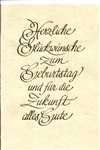 Herzliche
Glückwünsche
zum
Geburtstag
und für die
Zukunft
alles Gute